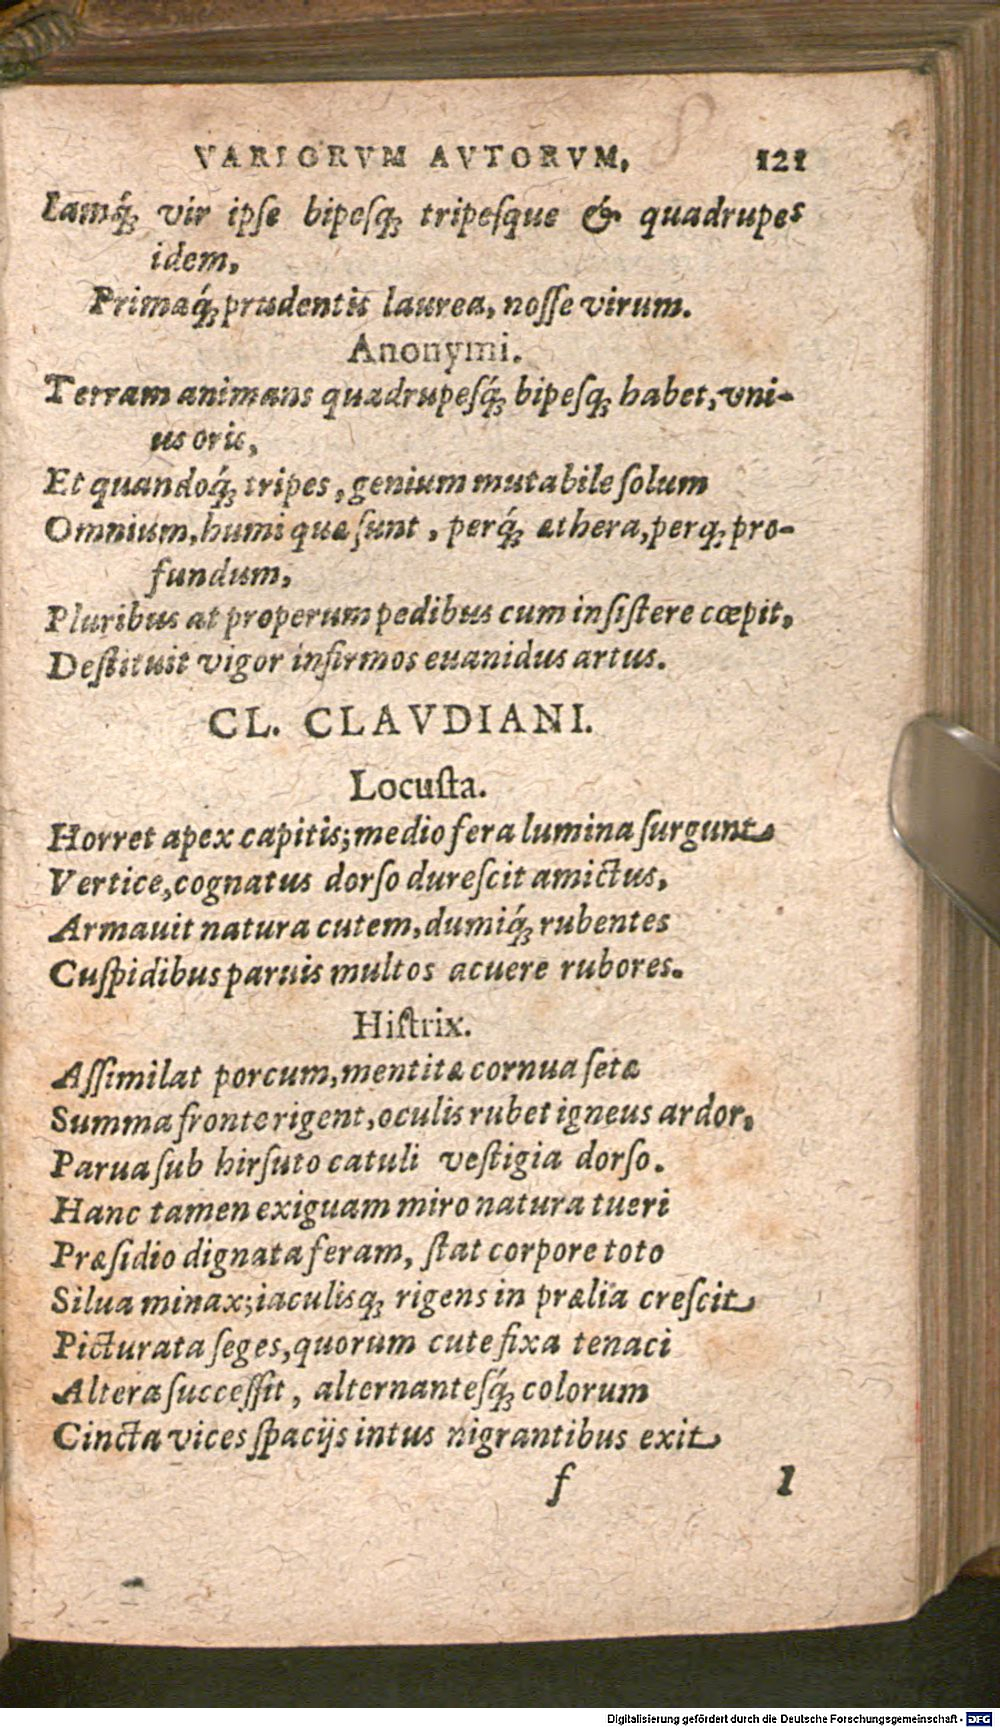 VARIORVM AVTORVM, 121
Iamq́ꝫ vir ipſe bipeſqꝫ tripeſque & quadrupes
idem,
Primaq́ꝫ prudentis laurea, noſſe virum.
Anonymi.
Terram animans quadrupeſq́ꝫ bipeſqꝫ habet, vni-
us oris,
Et quandoq́ꝫ tripes, genium mutabile ſolum
Omnium, humi quæ ſunt, perq́ꝫ æthera, perqꝫ pro-
fundum,
Pluribus at properum pedibus cum inſiſtere cœpit,
Deſtituit vigor infirmos euanidus artus.
CL. CLAVDIANI.
Locuſta.
Horret apex capitis; medio fera lumina ſurgunt
Vertice, cognatus dorſo dureſcit amictus,
Armauit natura cutem, dumiq́ꝫ rubentes
Cuſpidibus paruis multos acuere rubores.
Hiſtrix.
Aſſimilat porcum, mentitæ cornua ſetæ
Summa fronte rigent, oculis rubet igneus ardor,
Parua ſub hirſuto catuli veſtigia dorſo.
Hanc tamen exiguam miro natura tueri
Præſidio dignata feram, ſtat corpore toto
Silua minax; iaculisqꝫ rigens in prælia creſcit
Picturata ſeges, quorum cute fixa tenaci
Altera ſucceſſit, alternanteſq́ꝫ colorum
Cincta vices ſpacijs intus nigrantibus exit
f 1
Digitalisierung gefördert durch die Deutsche Forschungsgemeinschaft - DFG